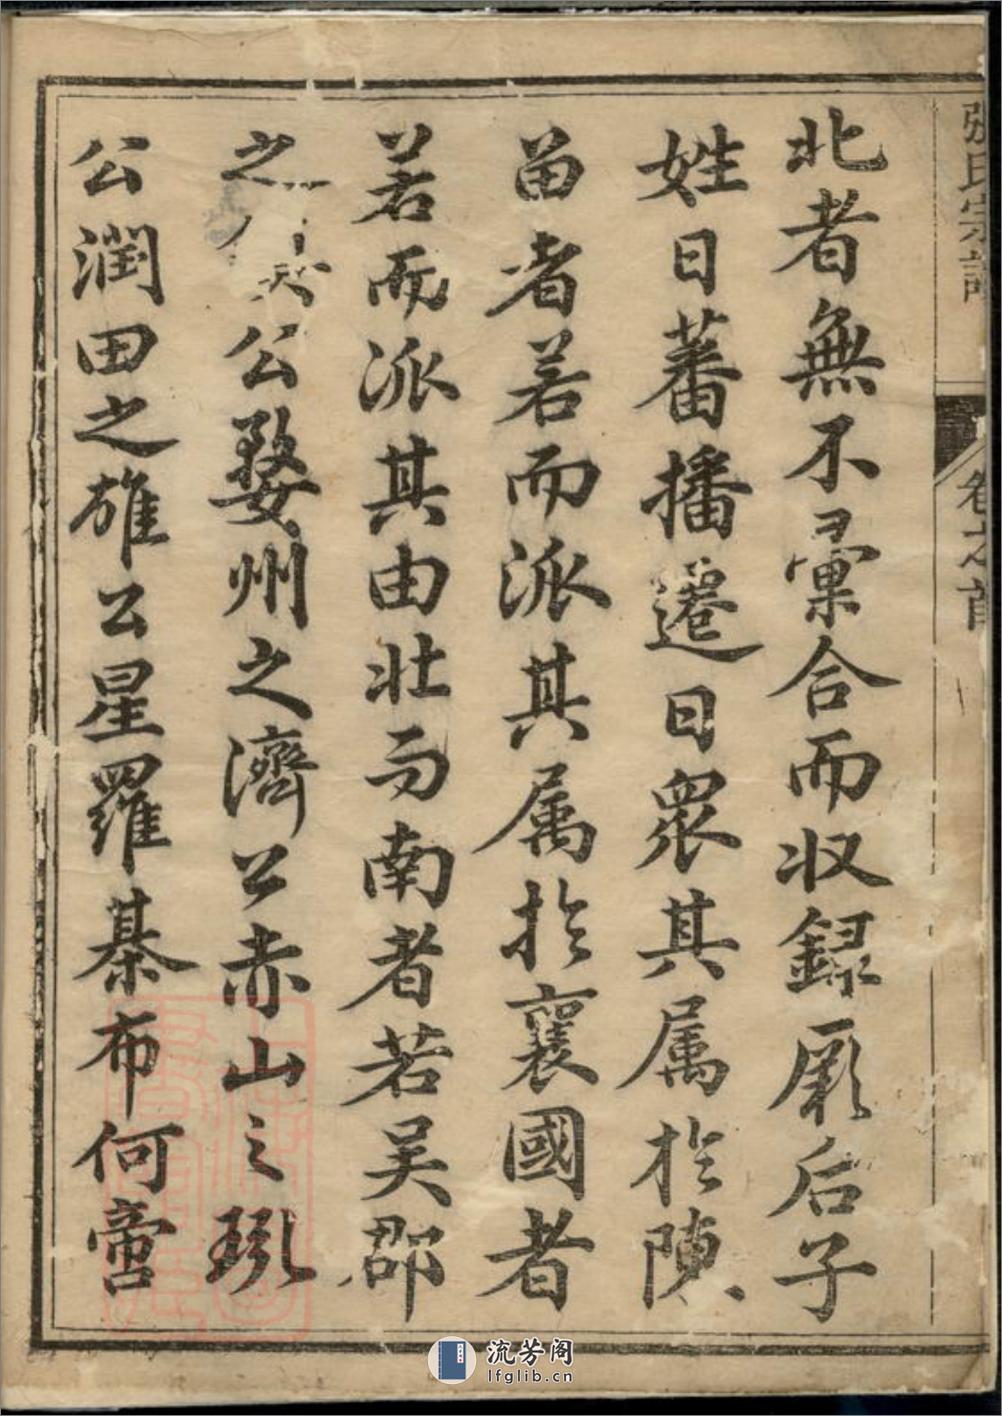 張氏宗譜 卷之首
北者無不彙合而收録厥后子
姓日蕃播遷日衆其属於陳
畱者若而派其属於襄國者
若而派其由北而南者若吴郡
之 公婺州之濟公赤山之珎
公潤田之雄公星羅棊布何啻
流芳阁
lfglib.cn